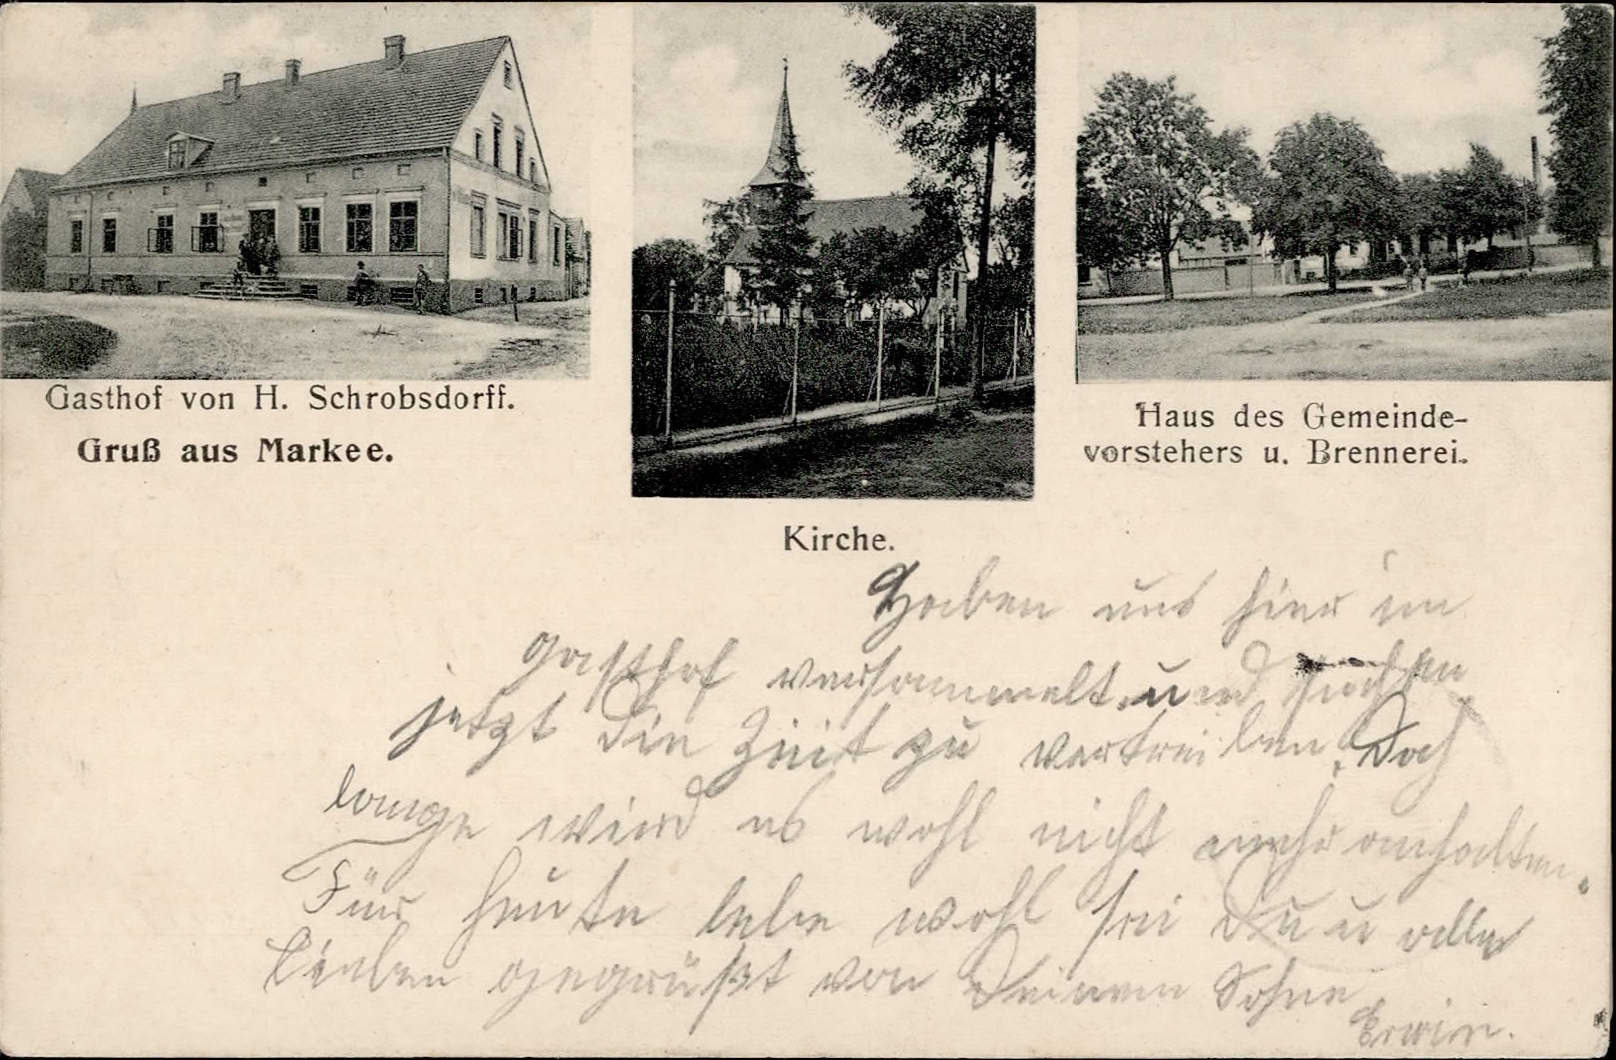 Gasthof von H. Schrobsdorff.
Gruß aus Markee.
Kirche.
Haus des Gemeinde-
vorstehers u. Brennerei.
Haben uns hier im
Gasthof versammelt und suchen
jetzt die Zeit zu vertreiben. Doch
lange wird es wohl nicht mehr anhalten.
Für heute lebe wohl sei Du u alle
Lieben gegrüßt von Deinem Sohne
Erwin.